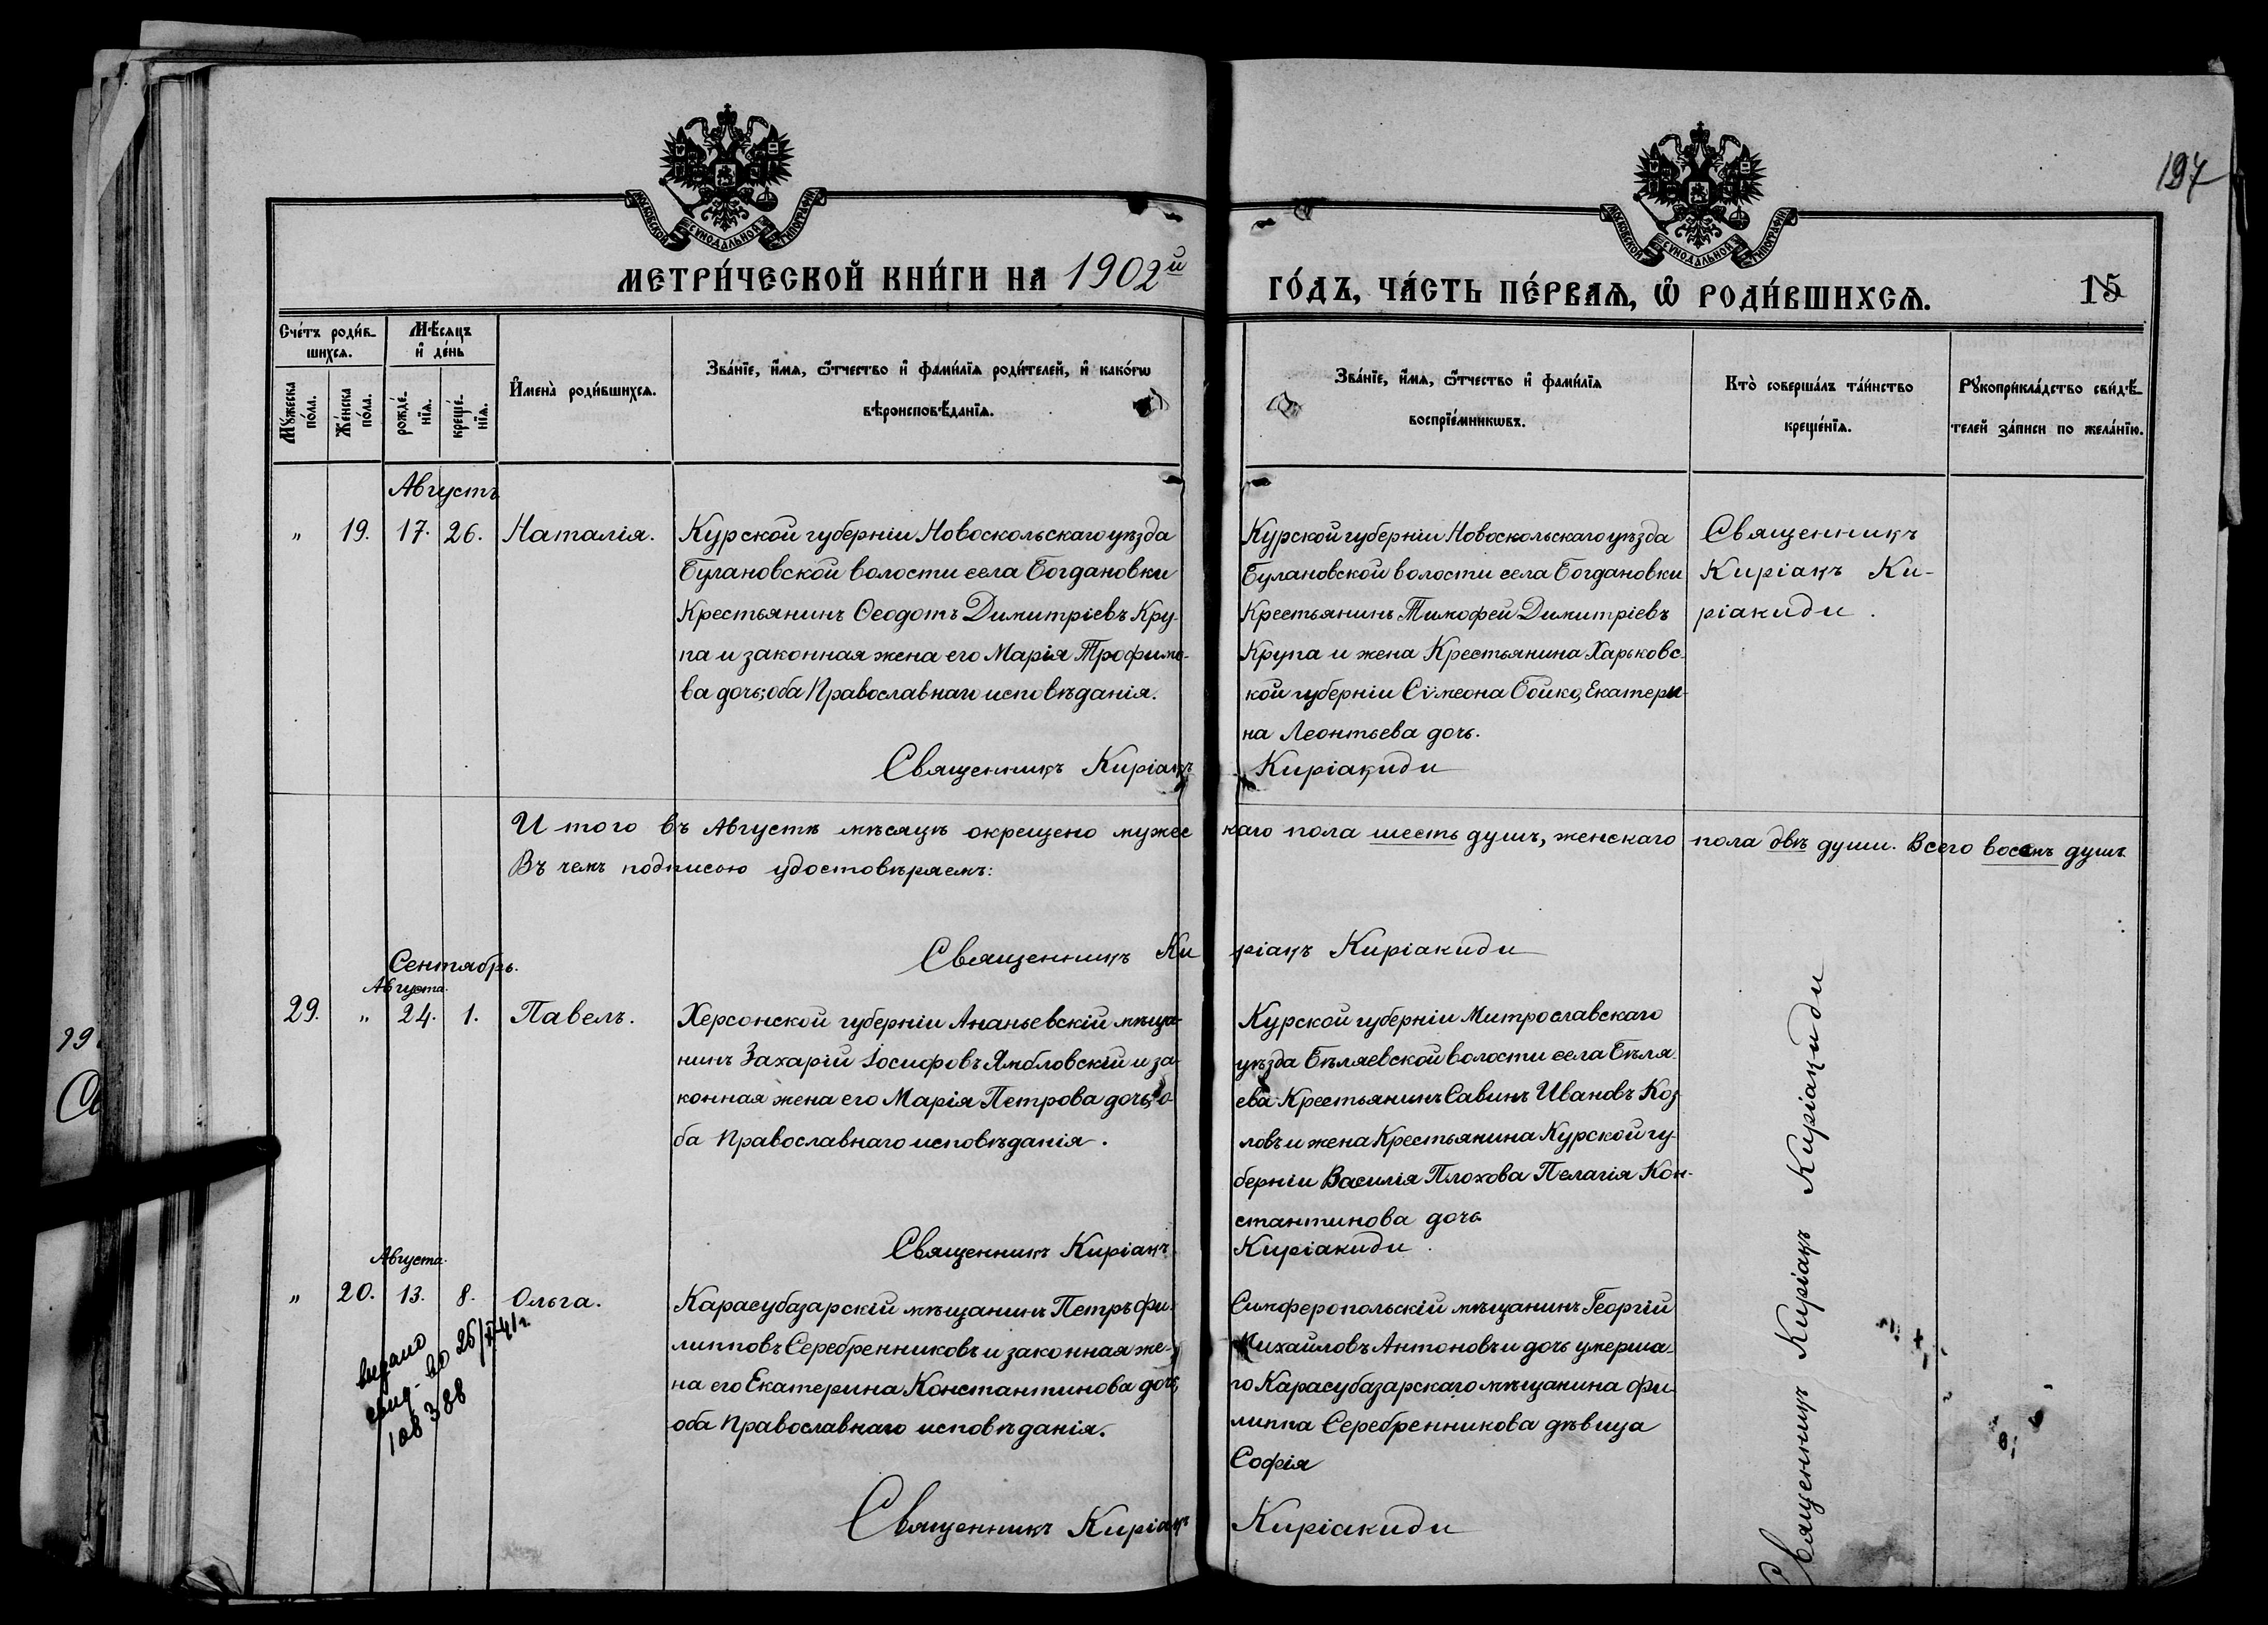 197
МОСКОВСКОЙ СУНОДАЛЬНОЙ ТИПОГРАФІИ
МОСКОВСКОЙ СУНОДАЛЬНОЙ ТИПОГРАФІИ
МЕТРИ́ЧЕСКОЙ КНИ́ГИ НА 1902й
ГО́ДЪ, ЧА́СТЬ ПЕ́РВАѦ, Ѽ РОДИ́ВШИХСѦ.
15
Сче́тъ роди́в-
шихсѧ.
Мѣ́сяцъ
и҆ де́нь
Мꙋ́жеска
по́ла.
Же́нска
по́ла.
рожде́-
нїѧ.
креще́-
нїѧ.
И҆мена̀ роди́вшихсѧ.
Зва́нїе, и҆́мѧ, ѻ҆́тчество и҆ фами́лїѧ роди́телей, и҆ како́гѡ
вѣроисповѣ́данїѧ.
Зва́нїе, и҆́мѧ, ѻ҆́тчество и҆ фами́лїѧ
воспрїе́мникѡвъ.
Кто̀ соверша́лъ та́инство
креще́нїѧ.
Рꙋкоприкла́дство свидѣ́-
телей за́писи по жела́нїю.
Августъ
„ 19. 17. 26. Наталія.
Курской губерніи Новоскольскаго уѣзда
Булановской волости села Богдановки
Крестьянинъ Ѳеодотъ Димитріевъ Кру-
па и законная жена его Марія Трофимо-
ва дочь; оба Православнаго исповѣданія.
Курской губерніи Новоскольскаго уѣзда
Булановской волости села Богдановки
Крестьянинъ Тимофей Димитріевъ
Крупа и жена Крестьянина Харьковс-
кой губерніи Сѵмеона Бойко, Екатери-
на Леонтьева дочь.
Священникъ
Киріакъ Ки-
ріакиди.
Священникъ Киріакъ Киріакиди
И того въ Августѣ мѣсяцѣ окрещено мужескаго пола шесть душъ, женскаго пола двѣ души. Всего восемь душъ
Въ чемъ подписью удостовѣряемъ:
Священникъ Киріакъ Киріакиди
Сентябрь.
Августа.
29. „ 24. 1. Павелъ.
Херсонской губерніи Ананьевскій мѣща-
нинъ Захарій Іосифовъ Ямбловскій и за-
конная жена его Марія Петрова дочь; о-
ба Православнаго исповѣданія.
Курской губерніи Митрославскаго
уѣзда Бѣляевской волости села Бѣля-
ева Крестьянинъ Савинъ Ивановъ Коз-
ловъ и жена Крестьянина Курской гу-
берніи Василія Плохова Пелагія Кон-
стантинова дочь
Священникъ Киріакъ Киріакиди.
Августа.
„ 20. 13. 8. Ольга.
Карасубазарскій мѣщанинъ Петръ Фи-
липповъ Серебренниковъ и законная же-
на его Екатерина Константинова дочь,
оба Православнаго исповѣданія.
Симферопольскій мѣщанинъ Георгій
Михайловъ Антоновъ и дочь умерша-
го Карасубазарскаго мѣщанина Фи-
липпа Серебренникова дѣвица
Софія
Священникъ Киріакъ Киріакиди
Священникъ Киріакъ Киріакиди
выдано
108388